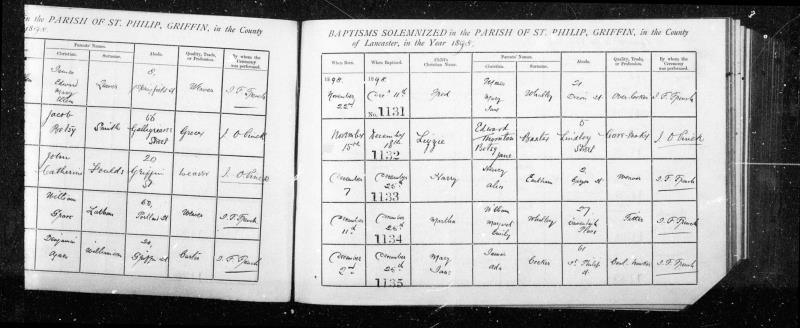 in the PARISH OF ST. PHILIP, GRIFFIN, in the County
1898.
Parents' Names.
Christian. Surname. Abode. Quality, Trade, or Profession. By whom the Ceremony was performed.
James
Edward
Mary
Ellen
8,
Weaver
J. F. French
Jacob
Betsy
Smith
66
Street
Grocer
J. O. Pinck
John
Catherine
Foulds
20
Griffin
St
Weaver
J. O. Pinck
William
Latham
60,
St
Weaver
J. F. French
Benjamin
Agnes
Williamson
Griffin St
Carter
J. F. French
BAPTISMS SOLEMNIZED in the PARISH OF ST. PHILIP, GRIFFIN, in the County
of Lancaster, in the Year 1898.
When Born. When Baptized. Child's Christian Name. Parents' Names. Christian. Surname. Abode. Quality, Trade, or Profession. By whom the Ceremony was performed.
1898. 1898.
November
22nd
Decr 11th
No. 1131
Fred
Mary
Jane
Whalley
21
St
Over Looker
J. F. French
November
15th
December
18th
1132
Lizzie
Edward
Thornton
Betsy
Jane
Baxter
5
Lindley
Street
J. O. Pinck
December
7
December
25th
1133
Harry
Henry
Alice
2,
St
Weaver
J. F. French
December
11th
December
25th
1134
Martha
William
Margaret
Emily
Whalley
27
Place
Fitter
J. F. French
December
2nd
December
25th
1135
Mary
James
Ada
Cocker
61
St. Philip
St
J. F. French